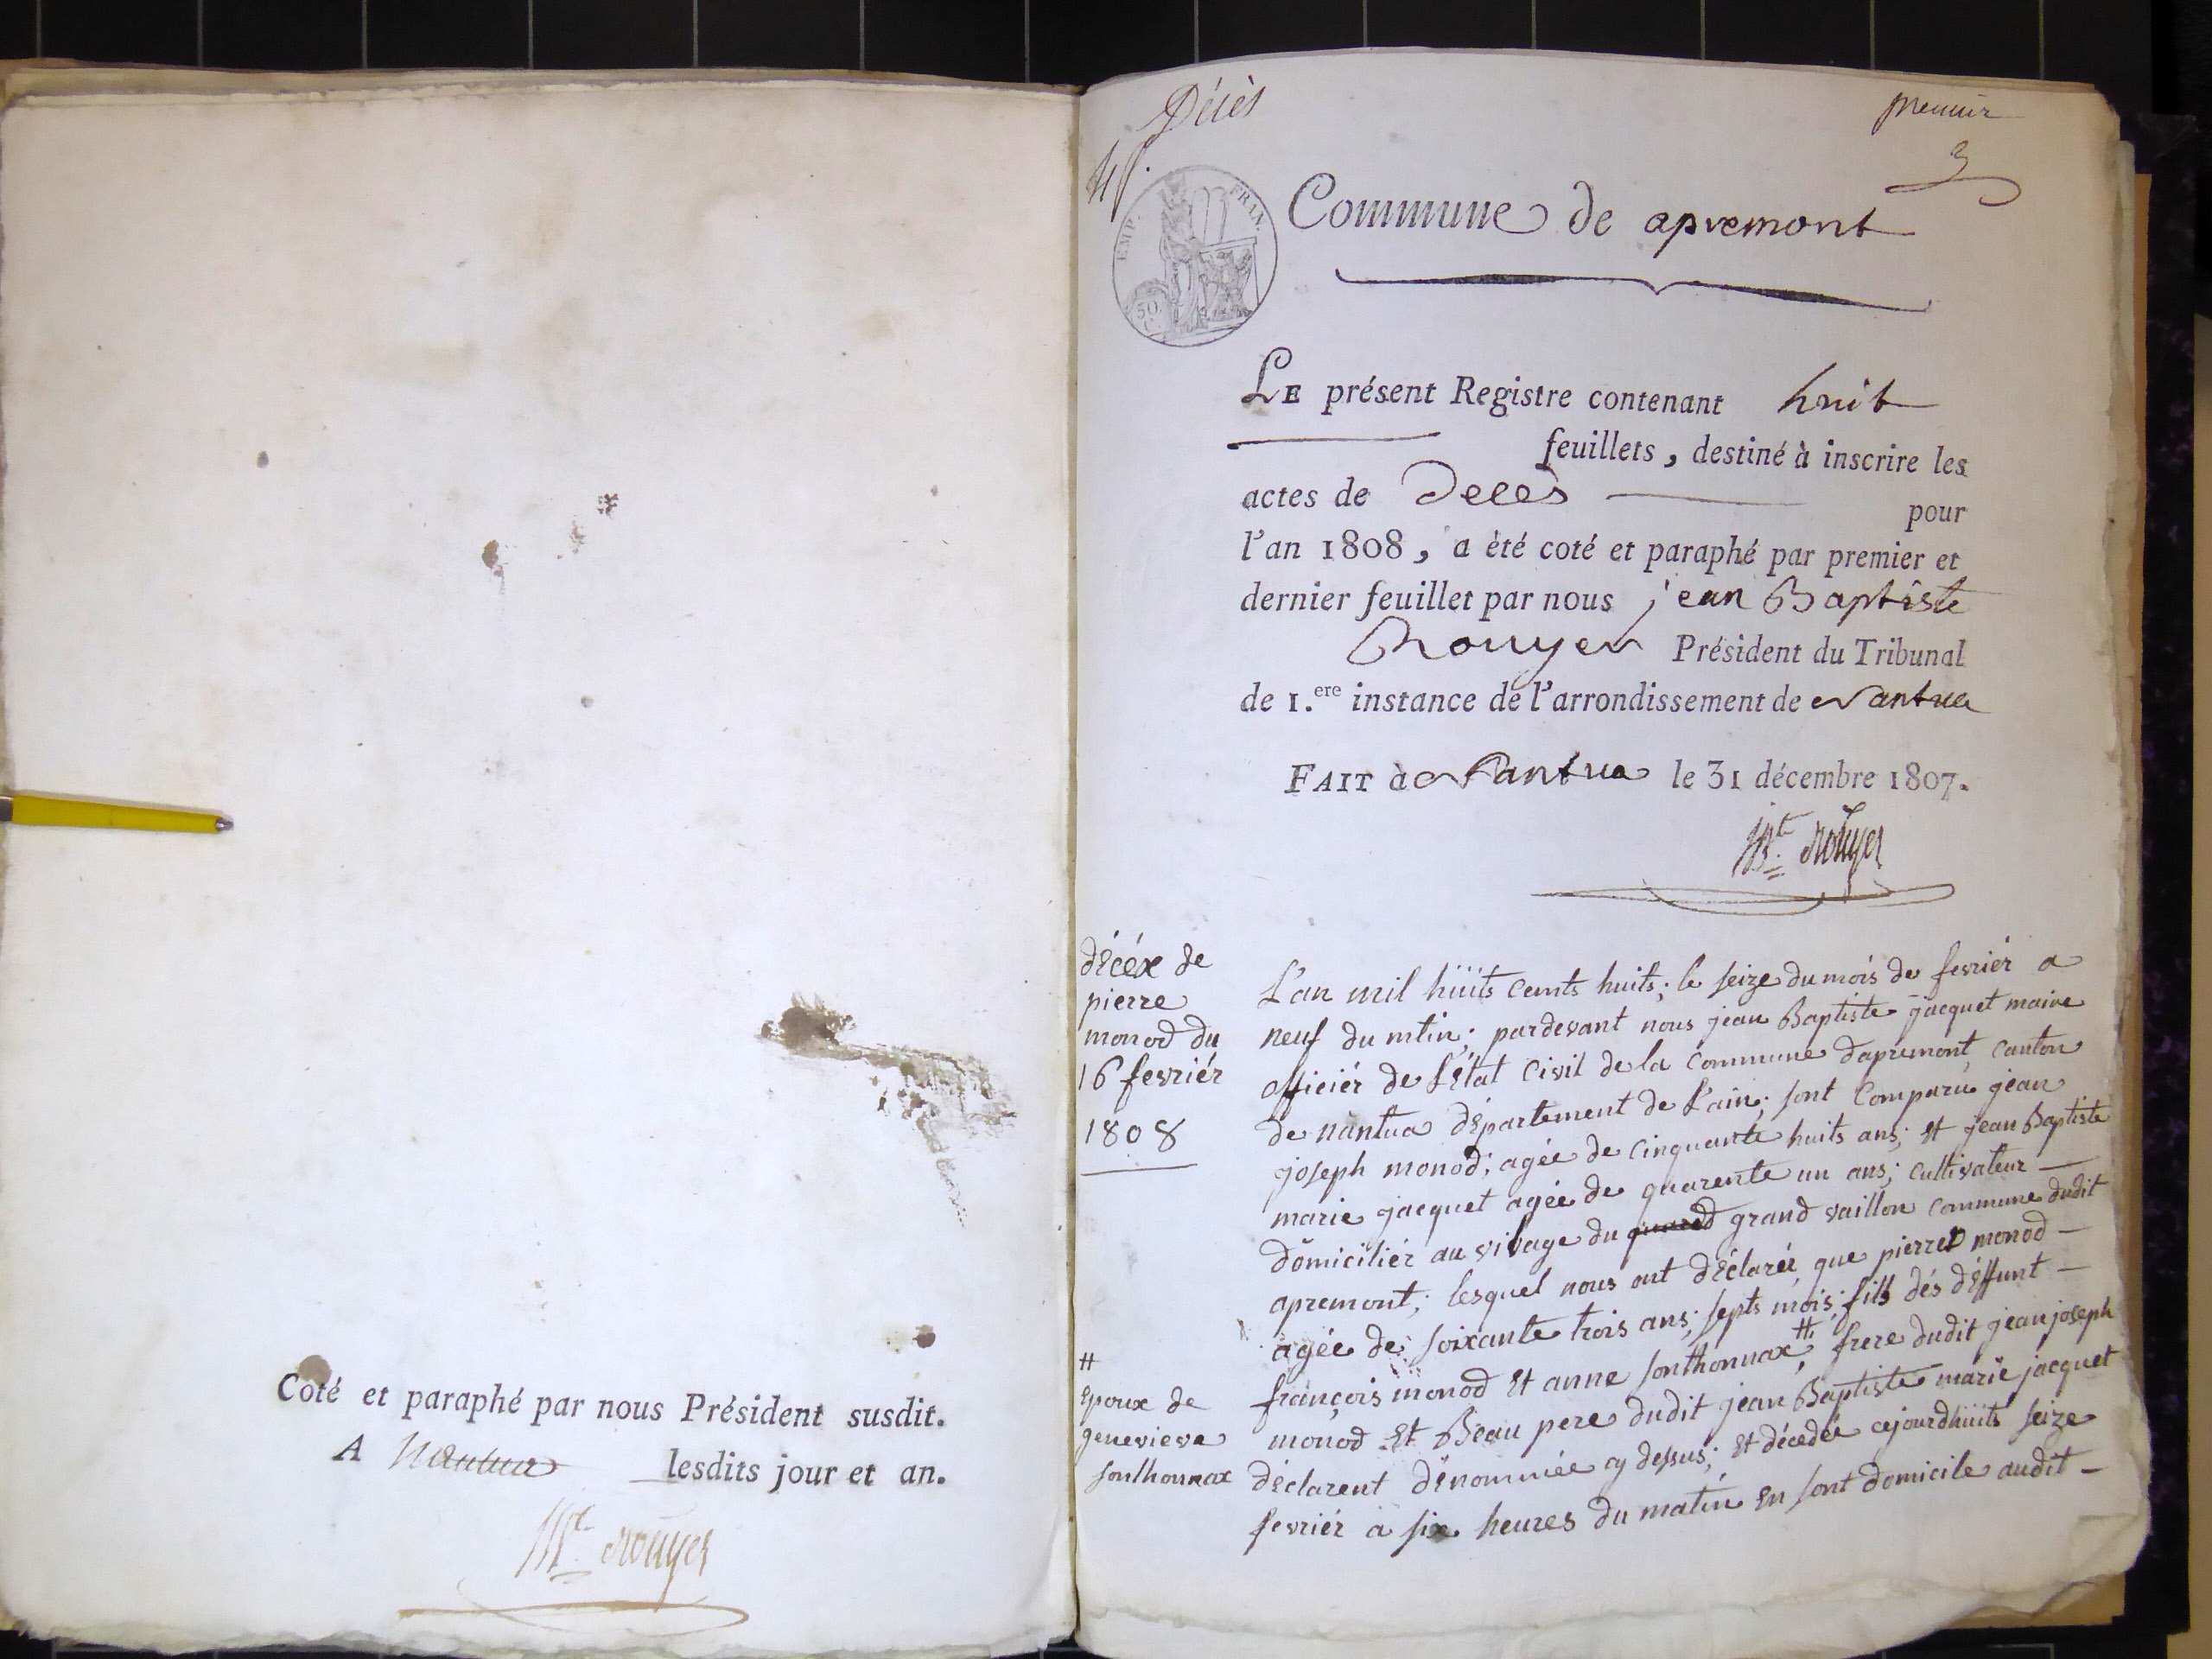 Coté et paraphé par nous Président susdit.
A Nantua lesdits jour et an.
JBte Rouyer
Décès
premier
EMP. FRAN.
50
C.
Commune de apremont
LE présent Registre contenant huit
feuillets, destiné à inscrire les
actes de Decès
pour
l'an 1808, a èté coté et paraphé par premier et
dernier feuillet par nous jean Baptiste
Rouyer Président du Tribunal
de 1.ere instance de l'arrondissement de Nantua
FAIT à Nantua le 31 décembre 1807.
JBte Rouyer
décéx de
pierre
monod du
16 fevriér
1808
L'an mil hüits cemts huits; le seize du mois de fevriér a
neuf du mtin; pardevant nous jean Baptiste jacquet maire
officiér de L'État Civil de la Commune d'apremont canton
de nantua département de L'ain; sont Comparu jean
joseph monod; agée de cinquante huits ans; et jean Baptiste
marie jacquet agée de quarente un ans; cultivateur
domiciliér au vilage du grand vaillon commune dudit
apremont; lesquel nous ont déclarér que pierre monod
agée de soixante trois ans; septs mois; fills dés déffunt
françois monod et anne sonthonnax #, frere dudit jean joseph
monod Et Beau pere dudit jean Baptiste marie jacquet
déclarent dénommée cy dessus; et décedée cejourdhüits seize
fevriér a six heures du matin En sont domicile audit
#
Epoux de
genevieve
sonthonnax